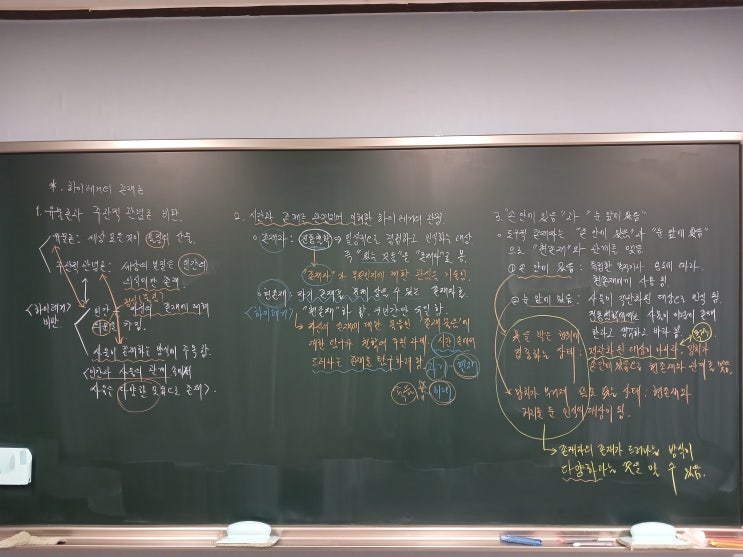 *. 하이데거의 존재론
1. 유물론과 주관적 관념론 비판.
유물론: 세상 모든 것이 물질의 산물.
주관적 관념론: 세상의 본질은 인간의
의식이란 존재.
<하이데거>
비판.
인간
자신의 존재에 의해
사물의 존재하는 방식에 주목함.
<인간과 사물의 관계 속에서
사물은 다양한 모습으로 존재>.
2. 시간과 존재를 관련지어 이해한 하이데거의 관점.
존재자: 전통철학 일상적으로 경험하고 인식하는 대상
즉, "있는 것들"은 "존재자"로 봄.
"존재자"가
현존재: 자기 존재를 문제 삼을 수 있는 존재자로.
<하이데거> "현존재"라 함. 인간만이 유일함.
시간 속에서
드러나는 존재로 탐구하려 함
과거 현재
미래
3. "손 안에 있음"과 "눈 앞에 있음"
도구적 존재자는 "손 안에 있음"과 "눈 앞에 있음"
으로 "현존재"와 관계를 맺음
① 손 안에 있음: 적합한 용도나 의도에 따라
현존재에게 사용됨.
② 눈 앞에 있음: 사물이 객관화된 대상으로 인식됨.
전통철학에서는 사물이 이렇게 존재
한다고 생각하고 바라봄.
못을 박는 행위에
집중하는 상태: 객관화된 대상이 아니라, 망치가
손안에 있음으로 현존재와 관계를 맺음.
망치가 망가져 쓸모 없는 상태: 현존재와
거리를 둔 인식의 대상이 됨.
존재자의 존재가 드러나는 방식이
다양하다는 것을 알 수 있음.